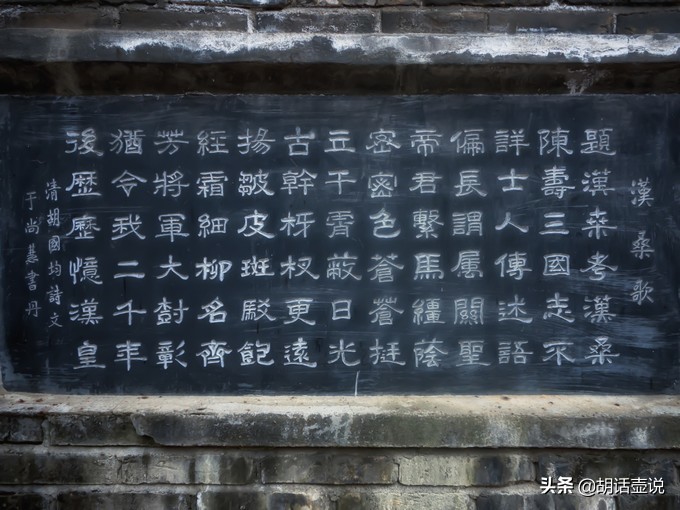 漢桑歌
題漢桒考漢桑
陳壽三國志不
詳士人傳述語
偏長謂屬關聖
帝君繫馬繮蔭
密密色蒼蒼挺
立干霄蔽日光
古幹枒杈更遠
揚皴皮斑駁飽
經霜細柳名齊
芳將軍大樹彰
猶令我二千年
後歷歷憶漢皇
清胡國均詩文
于尚書丹
头条 @胡话壶说